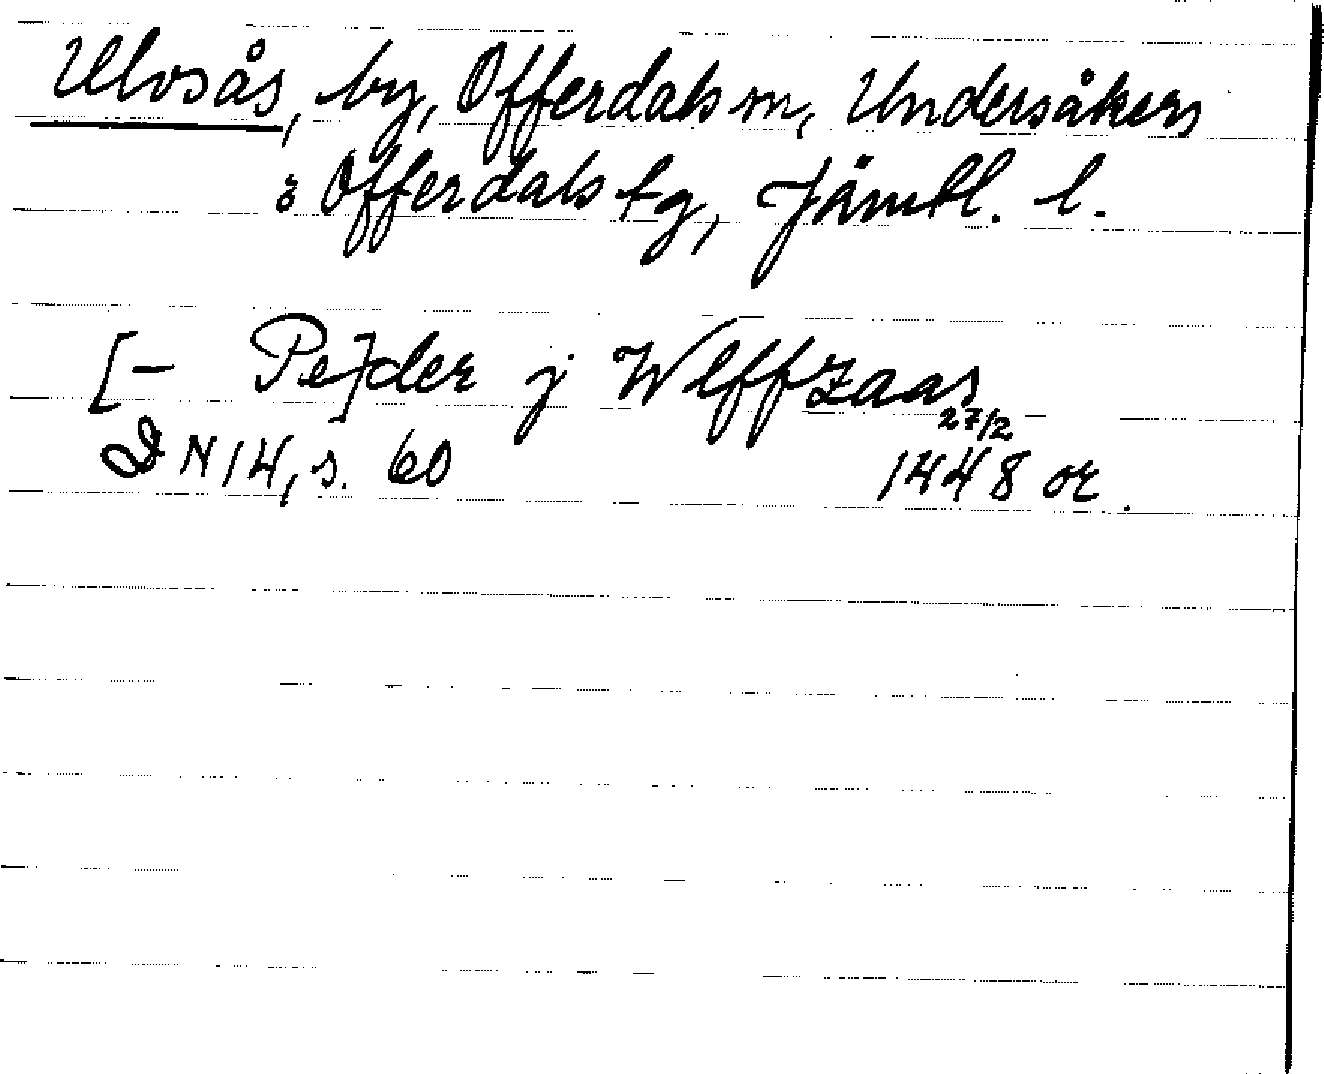 Ulvsås, by, Offerdals sn, Undersåkers
& Offerdals tg, Jämtl. l.
[– Pe]der j Wlffzaas
27/2
DN 14, s. 60 1448 or.